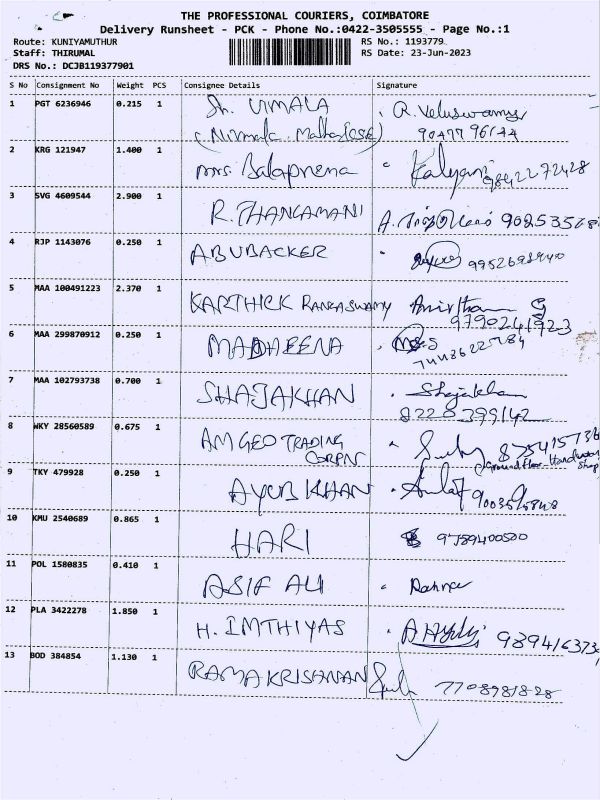 THE PROFESSIONAL COURIERS, COIMBATORE
Delivery Runsheet - PCK - Phone No.:0422-3505555 - Page No.:1
Route: KUNIYAMUTHUR RS No.: 1193779
Staff: THIRUMAL RS Date: 23-Jun-2023
DRS No.: DCJB119377901
S No Consignment No Weight PCS Consignee Details Signature
1 PGT 6236946 0.215 1 Sh. VIMALA R. Veluswamy
(Nirmala
2 KRG 121947 1.400 1 mrs Balaprema Kalyani 9842272428
3 SVG 4609544 2.900 1 R. THANGAMANI A.
4 RJP 1143076 0.250 1 ABUBACKER
5 MAA 100491223 2.370 1 KARTHICK RANGASWAMY
9790241923
6 MAA 299870912 0.250 1
7 MAA 102793738 0.700 1 SHAJAKHAN Shajakhan
8220399142
8 WKY 28560589 0.675 1 AM GEO TRADING
CORPN Ground floor
Shop
9 TKY 479928 0.250 1 AYUB KHAN
10 KMU 2540689 0.865 1 HARI 9789400500
11 POL 1580835 0.410 1 ASIF ALI
12 PLA 3422278 1.850 1 H. IMTHIYAS
13 BOD 384854 1.130 1 RAMAKRISHNAN 7708981828